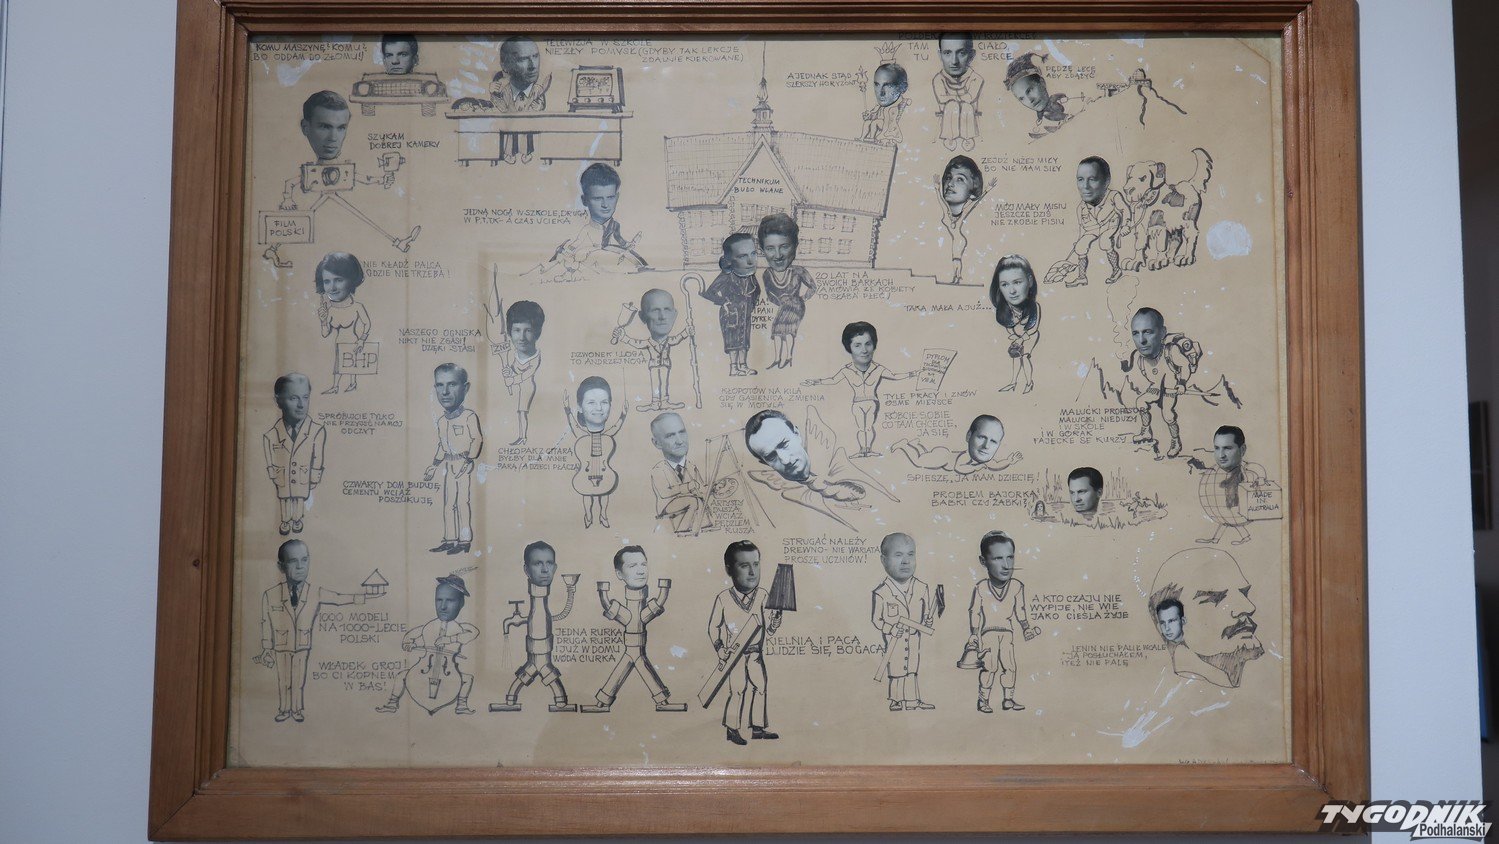 KOMU MASZYNĘ? KOMU?
BO ODDAM DO ZŁOMU!
TELEWIZJA W SZKOLE
NIEZŁY POMYSŁ (GDYBY TAK LEKCJE
ZDALNIE KIEROWANE)
A JEDNAK STĄD
SZERSZY HORYZONT
TAM CIAŁO,
TU SERCE
PĘDZĘ LECĘ
ABY ZDĄŻYĆ
SZUKAM
DOBREJ KAMERY
FILM
POLSKI
TECHNIKUM
BUDOWLANE
JEDNĄ NOGĄ W SZKOLE, DRUGĄ
W P.T.T.K- A CZAS UCIEKA
ZEJDŹ NIŻEJ MIŁY
BO NIE MAM SIŁY
MÓJ MAŁY MISIU
JESZCZE DZIŚ
NIE ZROBIŁ PISIU
NIE KŁADŹ PALCA
GDZIE NIE TRZEBA!
BHP
20 LAT NA
SWOICH BARKACH
(A MÓWIĄ ŻE KOBIETY
TO SŁABA PŁEĆ)
JA!
PANI
DYREK-
TOR
TAKA MAŁA A JUŻ...
NASZEGO OGNISKA
NIKT NIE ZGASI!
DZIĘKI STASI
DZWONEK I LOGA
TO ANDRZEJ NOGA
DYPLOM
TYLE PRACY I ZNÓW
ÓSME MIEJSCE
KŁOPOTÓW NA KILA
GDY GĄSIENICA ZMIENIA
SIĘ W MOTYLA
MALUĆKI PROFESOR
MALUĆKI NIEDUŻY
W SKOLE
I W GÓRAK
FAJECKE SE KURZY...
SPRÓBUJCIE TYLKO
NIE PRZYJŚĆ NA MÓJ
ODCZYT
RÓBCIE SOBIE
CO TAM CHCECIE,
JA SIĘ
SPIESZĘ, JA MAM DZIECIĘ!
CHŁOPAK Z GITARĄ
BYŁBY DLA MNIE
PARĄ (A DZIECI PŁACZĄ)
CZWARTY DOM BUDUJĘ
CEMENTU WCIĄŻ
POSZUKUJĘ
ARTYSTY
DUSZA
WCIĄŻ
PĘDZLEM
RUSZA
PROBLEM BAJORKA
BABKI CZY ŻABKI?
MADE
IN
AUSTRALIA
STRUGAĆ NALEŻY
DREWNO- NIE WARIATA
PROSZĘ UCZNIÓW!
1000 MODELI
NA 1000-LECIE
POLSKI
WŁADEK GROJ!
BO CI KOPNEM
W BAS!
JEDNA RURKA
DRUGA RURKA
I JUŻ W DOMU
WODA CIURKA
KIELNIA I PACA
LUDZIE SIĘ BOGACĄ
A KTO CZAJU NIE
WYPIJE, NIE WIE
JAKO CIEŚLA ŻYJE
LENIN NIE PALIŁ WCALE
JA POSŁUCHAŁEM,
I TEŻ NIE PALĘ
TYGODNIK
Podhalański